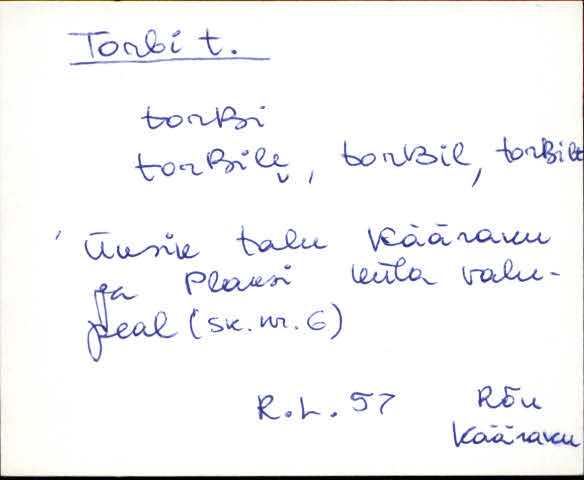 Torbi t.
torBi
torBilẹ, torBil, torBilt
Üksik talu Kääraku
ja Plaksi küla vahe-
peal (sk. nr. 6)
R.L. 57 Rõu
Kääraku